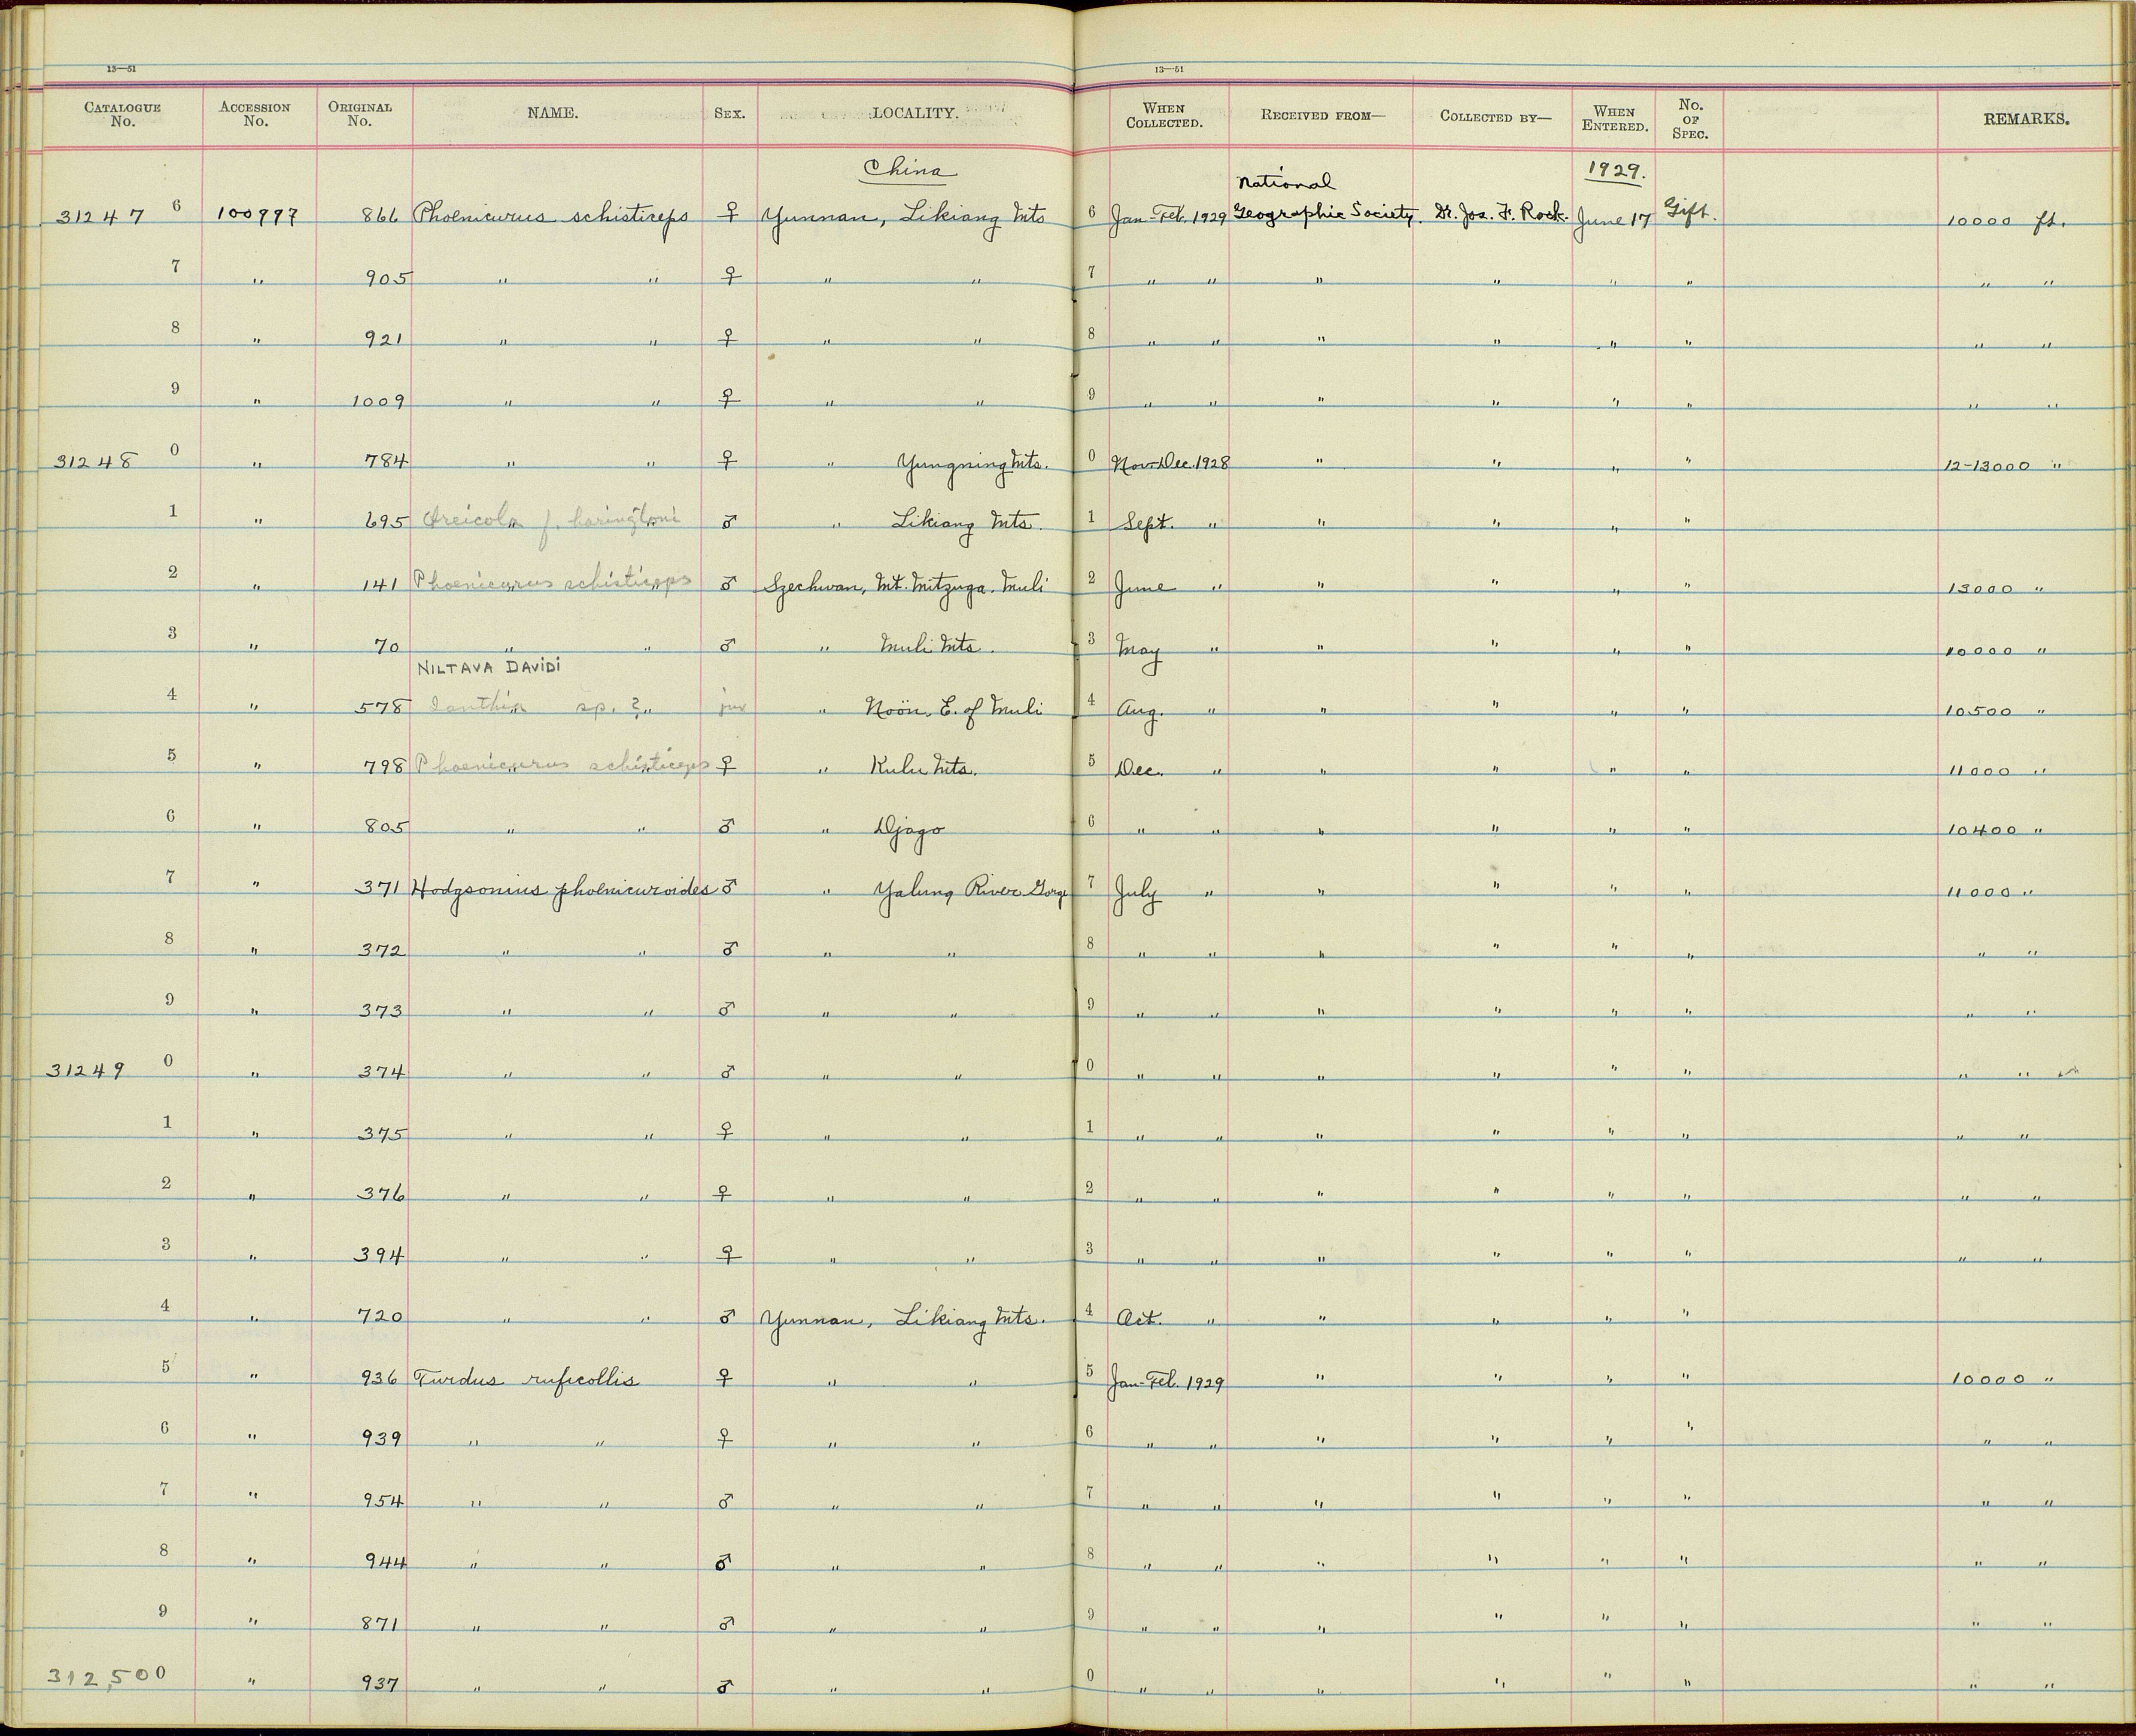 13—51 13—51
CATALOGUE No. ACCESSION No. ORIGINAL No. NAME. SEX. LOCALITY. WHEN COLLECTED. RECEIVED FROM— COLLECTED BY— WHEN ENTERED. No. OF SPEC. REMARKS.
China 1929.
31247 6 100997 866 Phoenicurus schisticeps ♀ Yunnan, Likiang Mts 6 Jan-Feb. 1929 National Geographic Society. Dr. Jos. F. Rock. June 17 Gift. 10000 ft.
7 " 905 " " ♀ " " 7 " " " " " " " "
8 " 921 " " ♀ " " 8 " " " " " " " "
9 " 1009 " " ♀ " " 9 " " " " " " " "
31248 0 " 784 " " ♀ " Yungning Mts. 0 Nov-Dec. 1928 " " " " 12-13000 "
1 " 695 Oreicola f. haringtoni ♂ " Likiang Mts. 1 Sept. " " " " "
2 " 141 Phoenicurus schisticeps ♂ Szechwan, Mt. Mitzuga. Muli 2 June " " " " " 13000 "
3 " 70 " " ♂ " Muli Mts. 3 May " " " " " 10000 "
NILTAVA DAVIDI
4 " 578 Ianthia sp. ? juv " Noön, E. of Muli 4 Aug. " " " " " 10500 "
5 " 798 Phoenicurus schisticeps ♀ " Kulu Mts. 5 Dec. " " " " " 11000 "
6 " 805 " " ♂ " Djago 6 " " " " " " 10400 "
7 " 371 Hodgsonius phoenicuroides ♂ " Yalung River Gorge 7 July " " " " " 11000 "
8 " 372 " " ♂ " " 8 " " " " " " " "
9 " 373 " " ♂ " " 9 " " " " " " " "
31249 0 " 374 " " ♂ " " 0 " " " " " " " "
1 " 375 " " ♀ " " 1 " " " " " " " "
2 " 376 " " ♀ " " 2 " " " " " " " "
3 " 394 " " ♀ " " 3 " " " " " " " "
4 " 720 " " ♂ Yunnan, Likiang Mts. 4 Oct. " " " " "
5 " 936 Turdus ruficollis ♀ " " 5 Jan-Feb. 1929 " " " " 10000 "
6 " 939 " " ♀ " " 6 " " " " " " " "
7 " 954 " " ♂ " " 7 " " " " " " " "
8 " 944 " " ♂ " " 8 " " " " " " " "
9 " 871 " " ♂ " " 9 " " " " " " " "
312,500 " 937 " " ♂ " " 0 " " " " " " " "